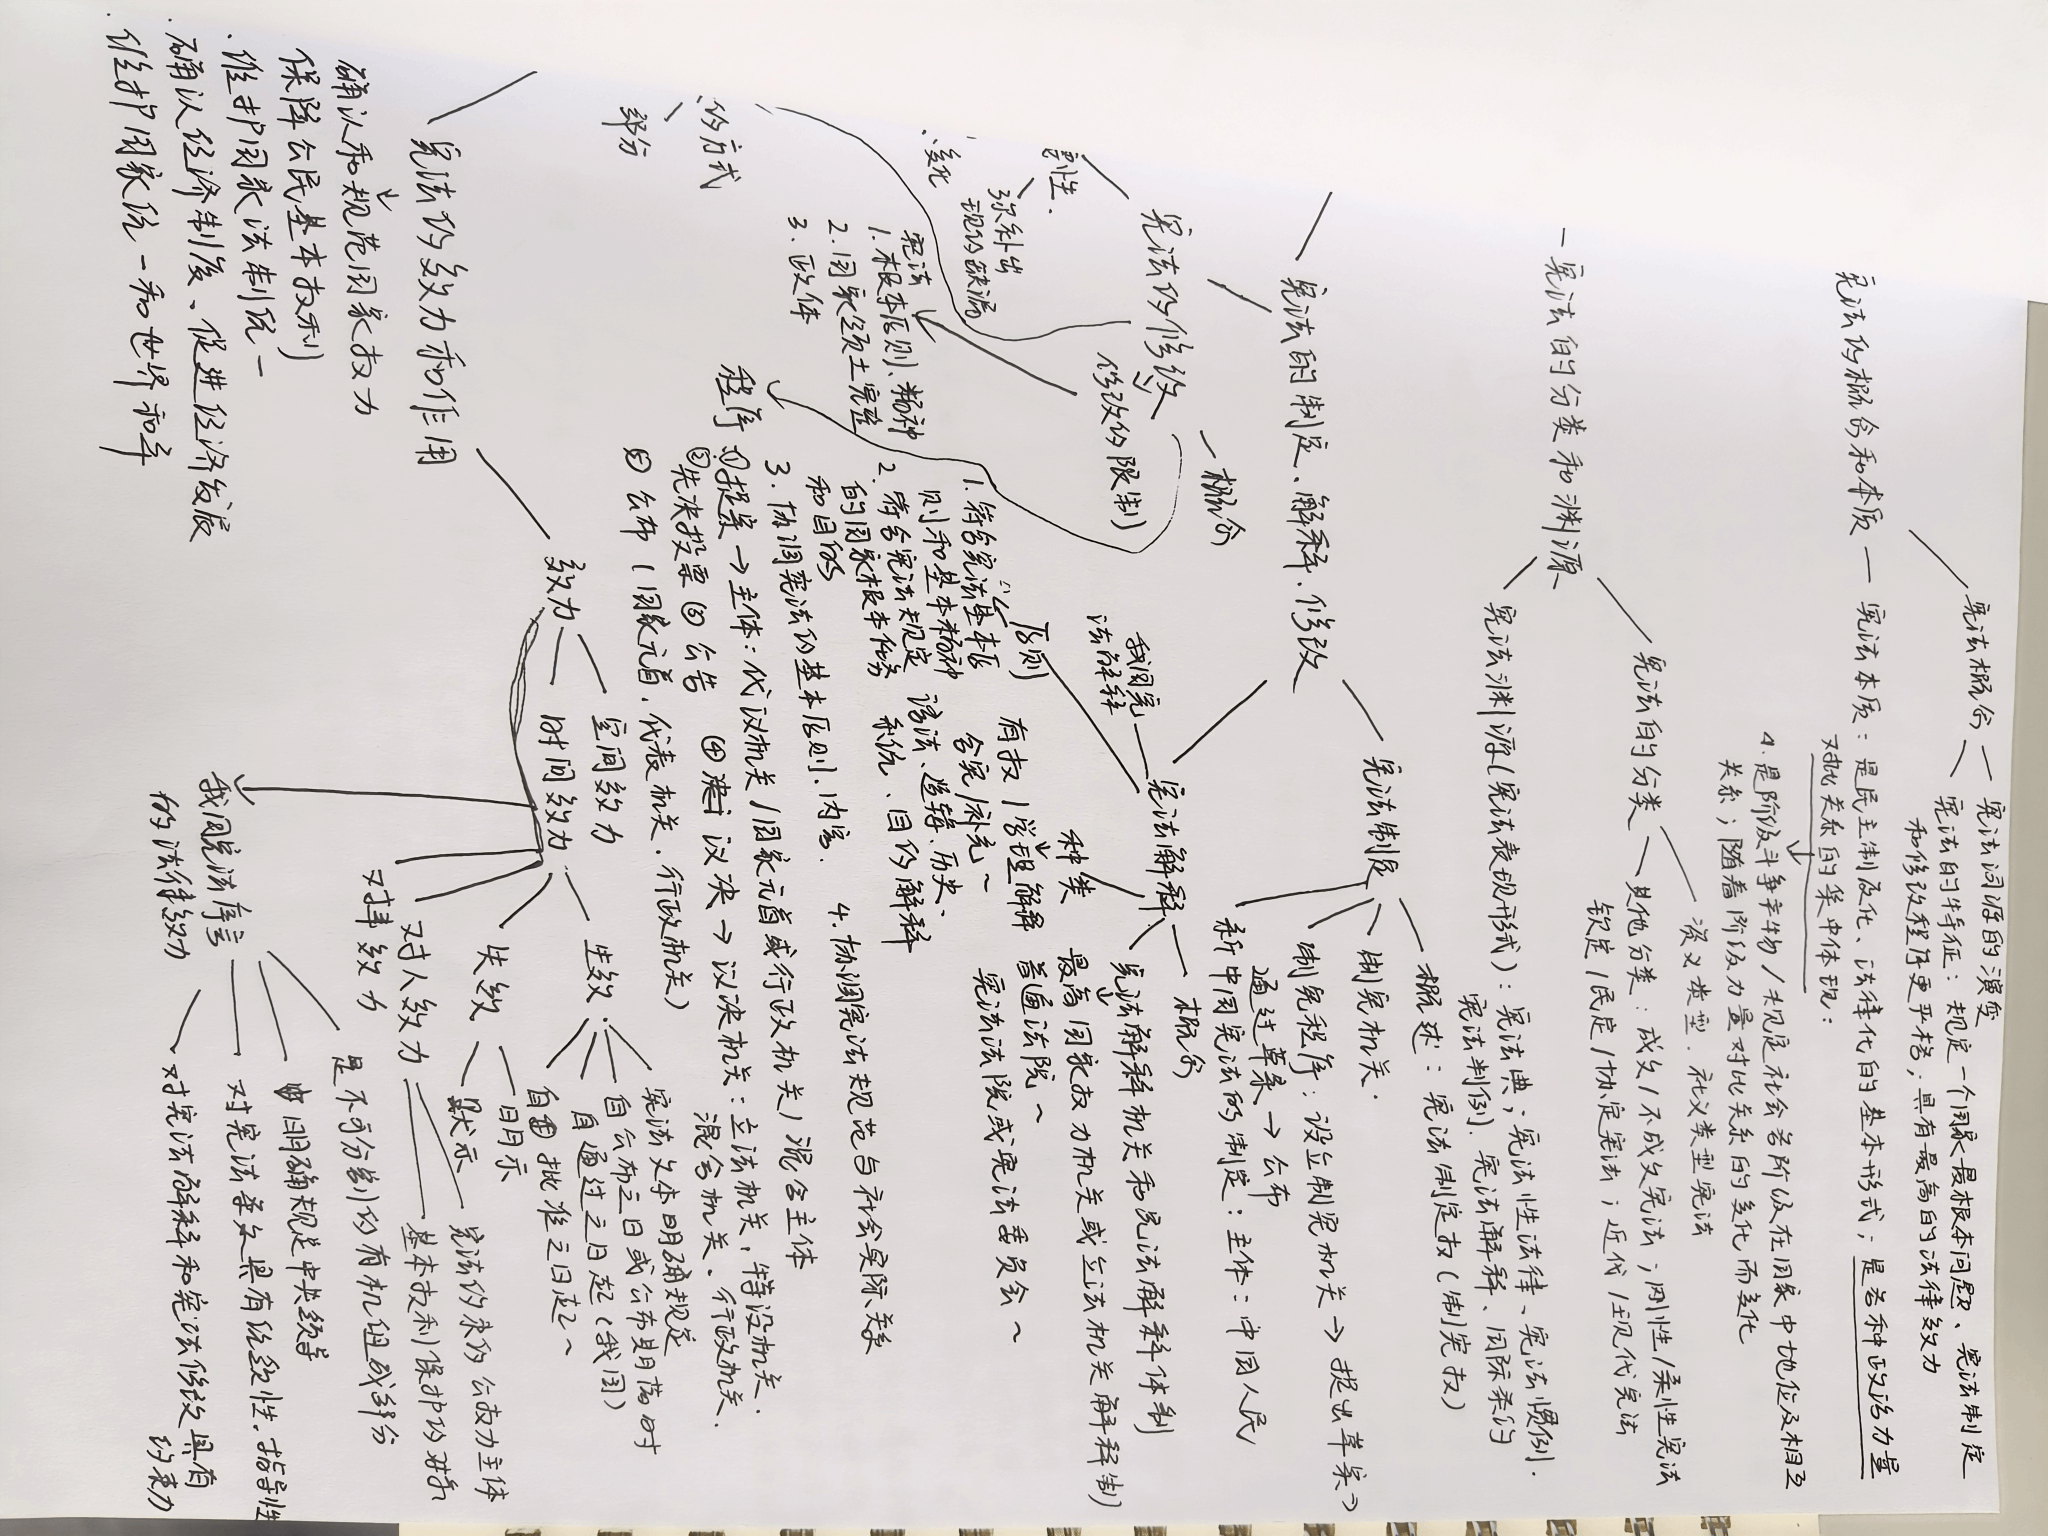 宪法的概念和本质
宪法概念
宪法词源的演变
宪法的特征：规定一个国家最根本问题、宪法制定
和修改程序更严格；具有最高的法律效力
宪法本质：是民主制度化、法律化的基本形式；是各种政治力量
对比关系的集中体现：
4.是阶级斗争产物/规定社会各阶级在国家中地位及相互
关系；随着阶级力量对比关系的变化而变化
宪法的分类和渊源
宪法的分类
资义类型、社义类型宪法
其他分类：成文/不成文宪法；刚性/柔性宪法
钦定/民定/协定宪法；近代/现代宪法
宪法渊源(宪法表现形式)：宪法典；宪法性法律、宪法惯例.
宪法判例、宪法解释、国际条约
宪法的制定、解释、修改
宪法制定
概述：宪法制定权(制宪权)
制宪机关.
制宪程序：设立制宪机关→提出草案→
通过草案→公布
新中国宪法的制定：主体：中国人民
宪法解释
概念
宪法解释机关和宪法解释体制
最高国家权力机关或立法机关解释制
普通法院～
宪法法院或宪法委员会～
种类
有权/学理解释
合宪/补充～
语法、逻辑、历史、
系统、目的解释
我国宪
法解释
原则
1.符合宪法基本原
则和基本精神
2.符合宪法规定
的国家根本任务
和目的
3.协调宪法的基本原则、内容.
4.协调宪法规范与社会实际关系
宪法的修改
概念
修改的限制
宪法
1.根本原则、精神
2.国家领土完整
3.政体
弥补出
现的缺漏
的方式
部分
程序
①提案→主体：代议机关/国家元首或行政机关/混合主体
②先决投票 ③公告 ④决议→议决机关：立法机关，特设机关.
混合机关、行政机关.
⑤公布(国家元首、代表机关、行政机关)
宪法的效力和作用
效力
空间效力
时间效力
生效.
宪法文本明确规定
自公布之日或公布期落时
自通过之日起(我国)
自批准之日起～
失效
明示
默示
对人效力
宪法约束的公权力主体
基本权利保护的对象
对事效力
我国宪法序言
的法律效力
是不可分割的有机组成部分
明确规定中央领导
对宪法条文具有统领性、指导性
对宪法解释和宪法修改具有
约束力
确认和规范国家权力
保障公民基本权利
·维护国家法制统一
·确认经济制度、促进经济发展
·维护国家统一和世界和平